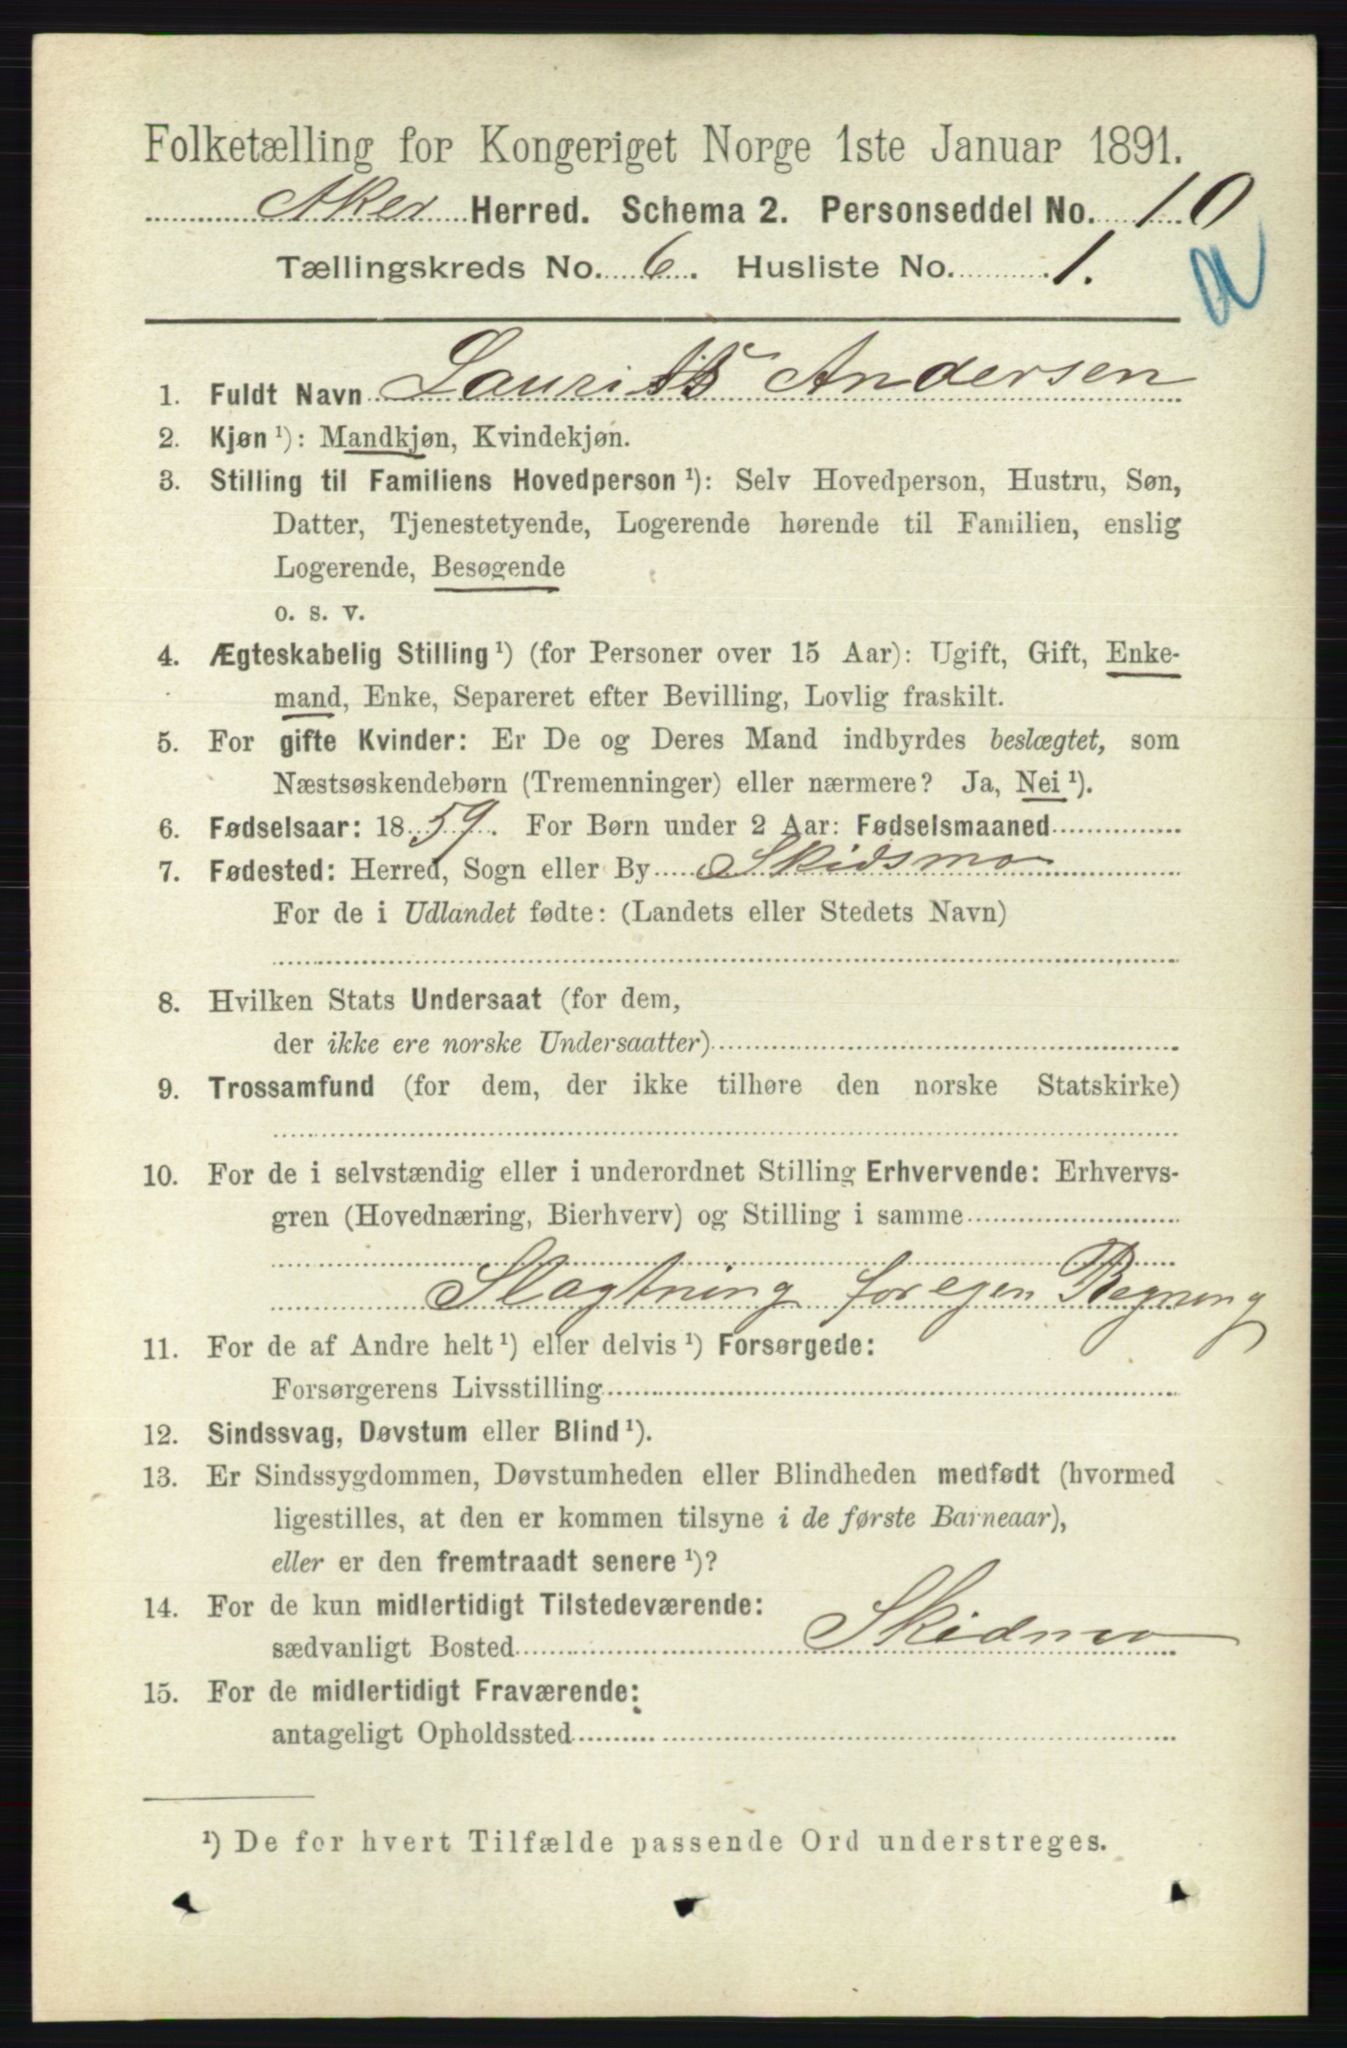 Folketælling for Kongeriget Norge 1ste Januar 1891.
Aker Herred. Schema 2. Personseddel No. 10
Tællingskreds No. 6. Husliste No. 1.
a
1. Fuldt Navn Lauritz Andersen
2. Kjøn ¹): Mandkjøn, Kvindekjøn.
3. Stilling til Familiens Hovedperson ¹): Selv Hovedperson, Hustru, Søn,
Datter, Tjenestetyende, Logerende hørende til Familien, enslig
Logerende, Besøgende
o. s. v.
4. Ægteskabelig Stilling ¹) (for Personer over 15 Aar): Ugift, Gift, Enke-
mand, Enke, Separeret efter Bevilling, Lovlig fraskilt.
5. For gifte Kvinder: Er De og Deres Mand indbyrdes beslægtet, som
Næstsøskendebørn (Tremenninger) eller nærmere? Ja, Nei ¹).
6. Fødselsaar: 1859. For Børn under 2 Aar: Fødselsmaaned
7. Fødested: Herred, Sogn eller By Skidsmo
For de i Udlandet fødte: (Landets eller Stedets Navn)
8. Hvilken Stats Undersaat (for dem,
der ikke ere norske Undersaatter)
9. Trossamfund (for dem, der ikke tilhøre den norske Statskirke)
10. For de i selvstændig eller i underordnet Stilling Erhvervende: Erhvervs-
gren (Hovednæring, Bierhverv) og Stilling i samme
Slagtning for egen Regning
11. For de af Andre helt ¹) eller delvis ¹) Forsørgede:
Forsørgerens Livsstilling
12. Sindssvag, Døvstum eller Blind ¹).
13. Er Sindssygdommen, Døvstumheden eller Blindheden medfødt (hvormed
ligestilles, at den er kommen tilsyne i de første Barneaar),
eller er den fremtraadt senere ¹)?
14. For de kun midlertidigt Tilstedeværende:
sædvanligt Bosted Skidmo
15. For de midlertidigt Fraværende:
antageligt Opholdssted
¹) De for hvert Tilfælde passende Ord understreges.